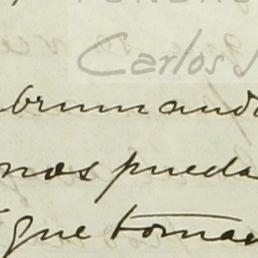 Carlos
brumando
nos pueda
que toman